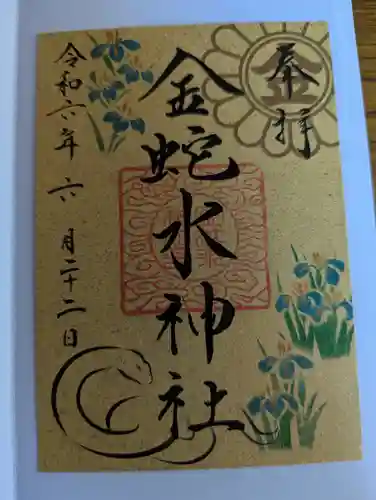 奉拝
金
金蛇水神社
令和六年六月二十二日